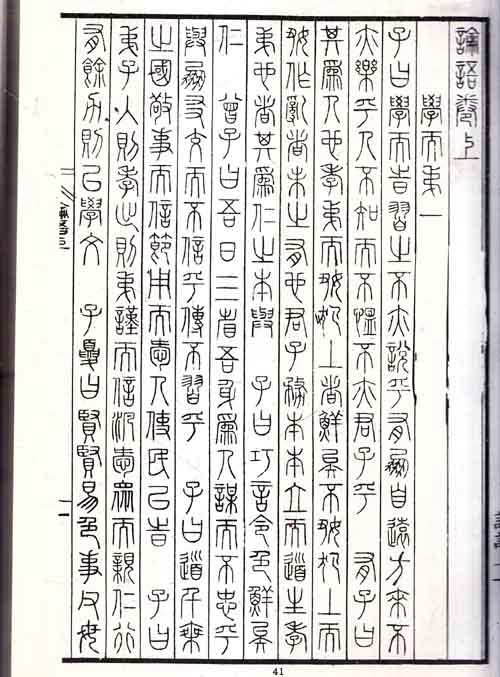 論語卷上
學而弟一
子曰學而時習之不亦說乎有朋自遠方來不
亦樂乎人不知而不慍不亦君子乎 有子曰
其爲人也孝弟而好犯上者鮮矣不好犯上而
好作亂者未之有也君子務本本立而道生孝
弟也者其爲仁之本與 子曰巧言令色鮮矣
仁 曾子曰吾日三省吾身爲人謀而不忠乎
與朋友交而不信乎傳不習乎 子曰道千乘
之國敬事而信節用而愛人使民以時 子曰
弟子入則孝出則弟謹而信汎愛眾而親仁行
有餘力則以學文 子夏曰賢賢易色事父母
41